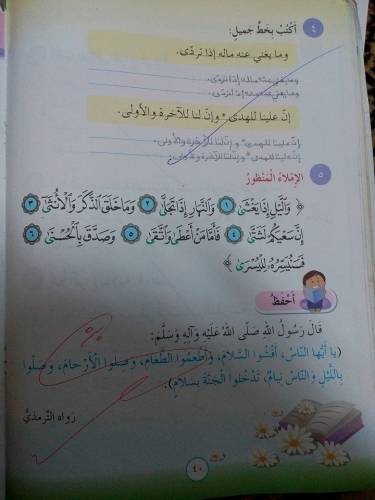 ٤ أَكْتُبُ بِخَطٍّ جَميلٍ:
وما يغني عنه ماله إذا تردّى.
وما يغني عنه ماله إذا تردّى.
وما يغني عنه ماله إذا تردّى.
إنّ علينا للهدى * وإنّ لنا للآخرة والأولى.
إنّ علينا للهدى * وإنّ لنا للآخرة والأولى.
إنّ علينا للهدى * وإنّ لنا للآخرة والأولى.
٥ الإِمْلاءُ الْمَنْظورُ
﴿ وَٱلَّيْلِ إِذَا يَغْشَىٰ ١ وَٱلنَّهَارِ إِذَا تَجَلَّىٰ ٢ وَمَا خَلَقَ ٱلذَّكَرَ وَٱلْأُنثَىٰ ٣
إِنَّ سَعْيَكُمْ لَشَتَّىٰ ٤ فَأَمَّا مَنْ أَعْطَىٰ وَٱتَّقَىٰ ٥ وَصَدَّقَ بِٱلْحُسْنَىٰ ٦
فَسَنُيَسِّرُهُۥ لِلْيُسْرَىٰ ﴾
أَحْفَظُ
قَالَ رَسُولُ اللهِ صَلَّى اللهُ عَلَيْهِ وَآلِهِ وَسَلَّمَ:
(يا أَيُّها النَّاسُ، أَفْشُوا السَّلامَ، وَأَطْعِمُوا الطَّعامَ، وَصِلُوا الْأَرْحامَ، وَصَلُّوا
بِاللَّيْلِ وَالنَّاسُ نِيامٌ، تَدْخُلُوا الْجَنَّةَ بِسَلامٍ).
رَواه التِّرمذيّ
٤٠